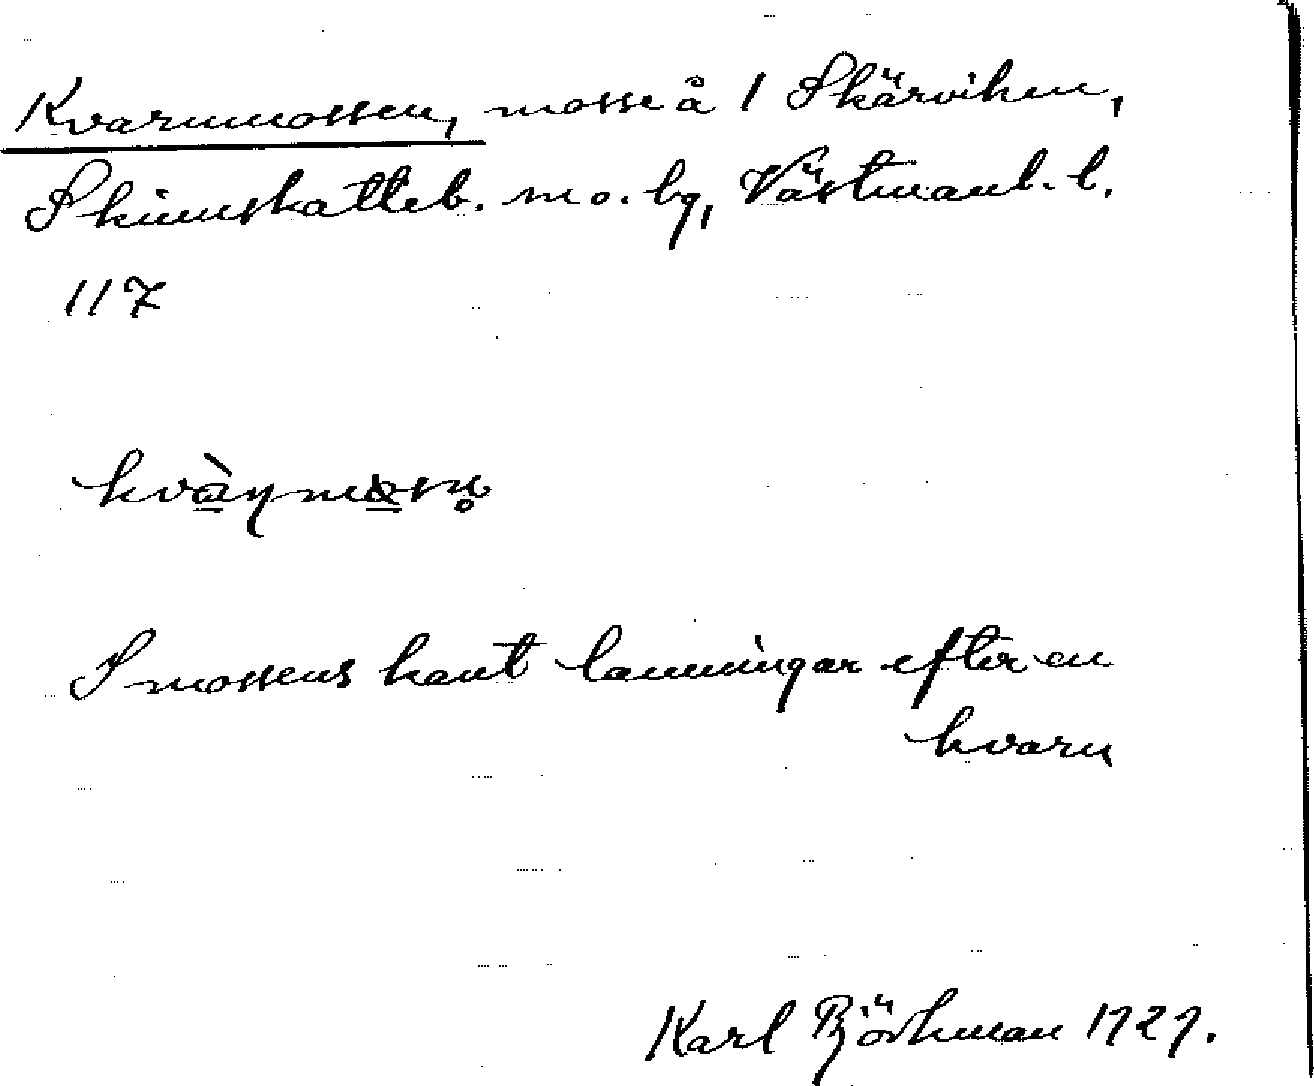 Kvarnmossen, mosse å 1 Skärviken,
Skinnskatteb. sn o. bg, Västmanl. l.
117
I mossens kant lämningar efter en
kvarn
Karl Björkman 1929.